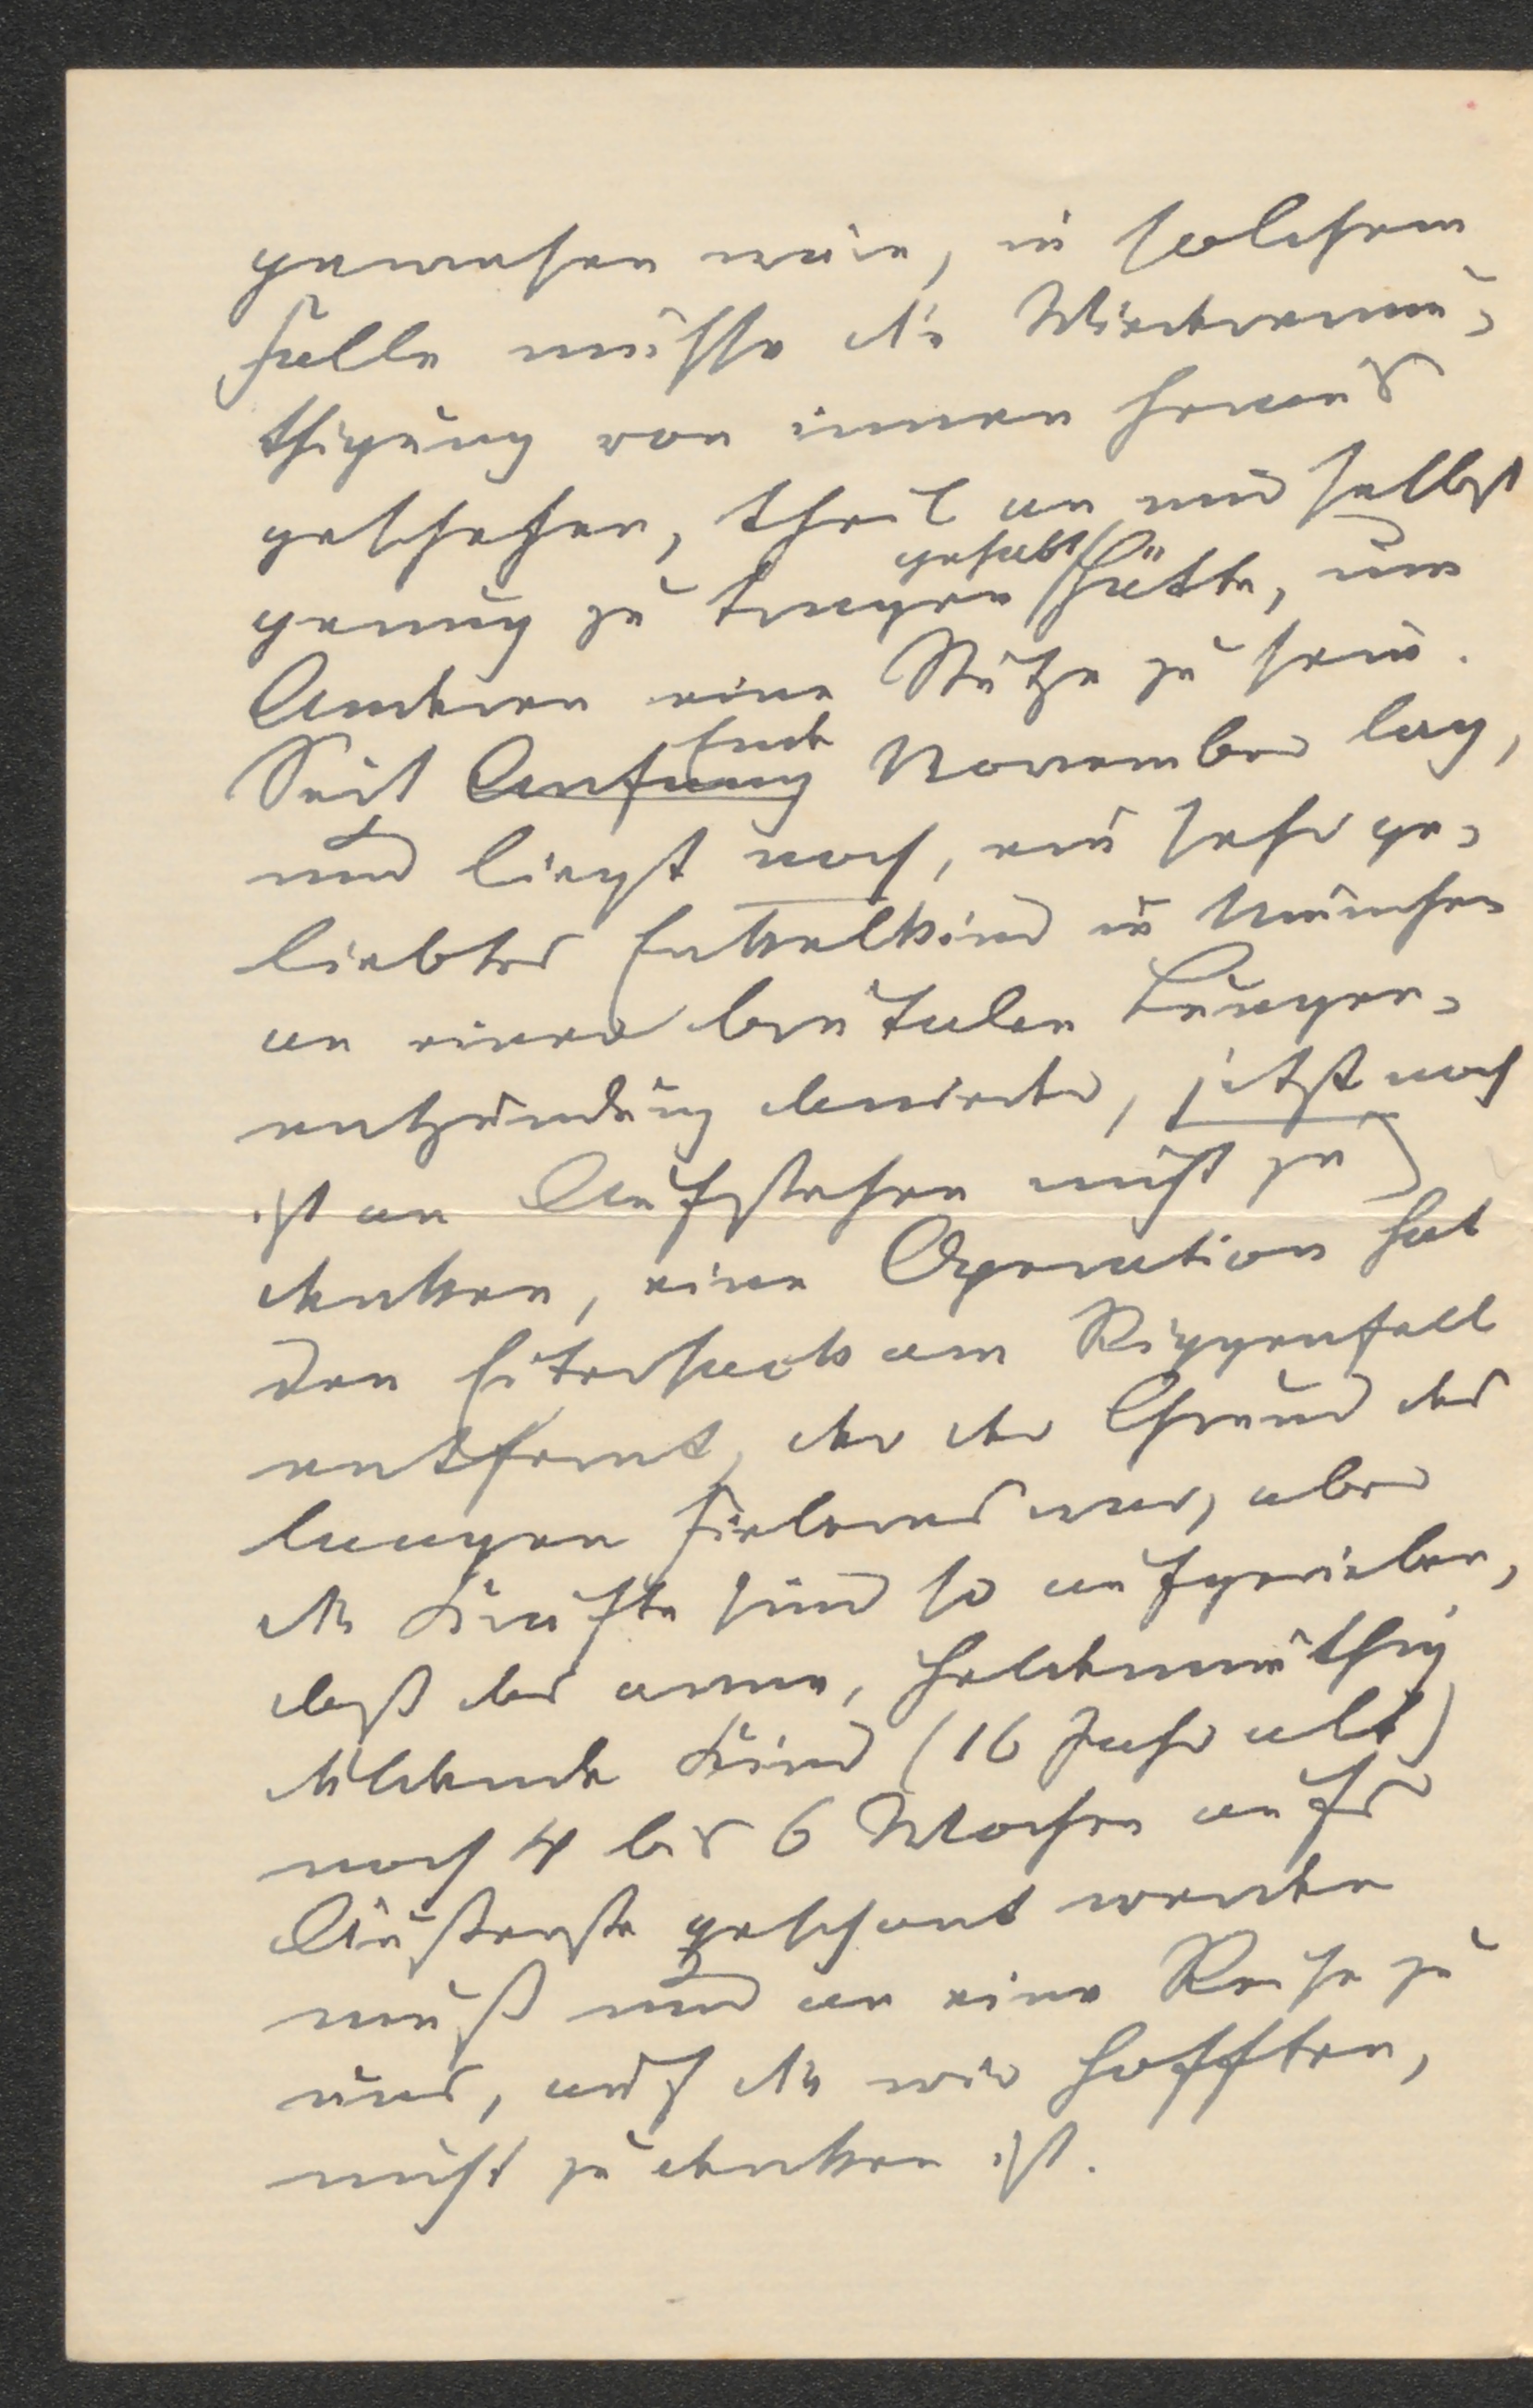 gewesen wäre, in solchem
Falle müsste die Wiederermu-
thigung von innen heraus
geschehen, theils an mir selbst
genug zu tragen gehabt hätte, um
Anderen eine Stütze zu sein.
Seit Anfang Ende November lag,
und liegt noch, ein sehr ge-
liebtes Enkelkind in München
an einer brutalen Lungen-
entzündung darnieder, jetzt noch
ist an Aufstehen nicht zu
denken, eine Operation hat
den Eitersack am Rippenfell
entfernt, der der Grund des
langen Fieberns war, aber
die Kräfte sind so aufgerieben,
daß das arme, heldenmüthig
duldende Kind (16 Jahr alt)
noch 4 bis 6 Wochen aufs
Äußerste geschont werden
muß und an eine Reise zu
uns, auf die wir hofften,
nicht zu denken ist.